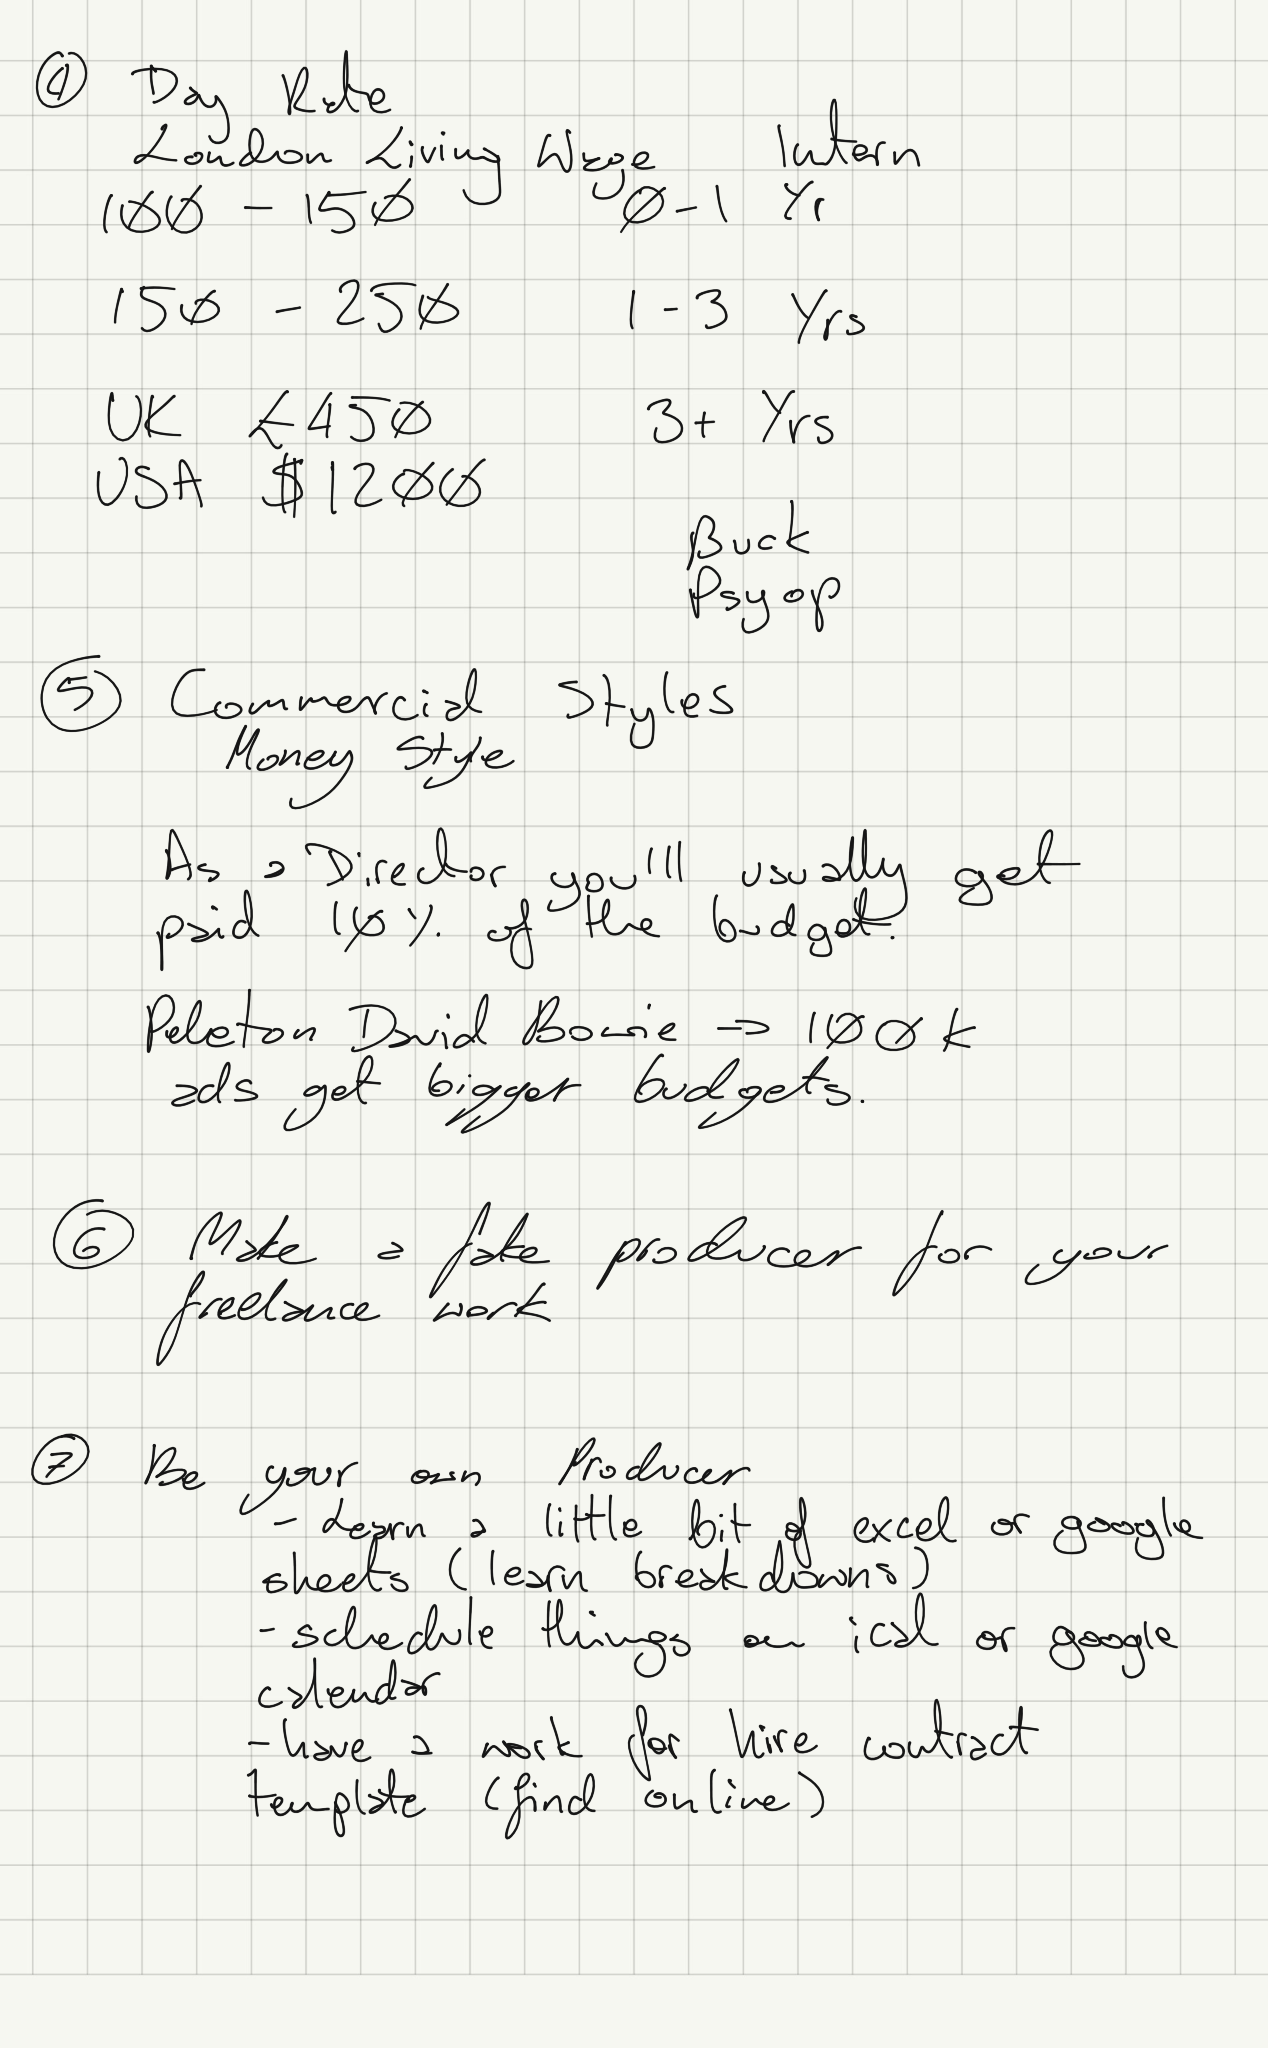 ④ Day Rate
London Living Wage Intern
100 - 150 0-1 Yr
150 - 250 1-3 Yrs
UK £450 3+ Yrs
USA $1200
Buck
Psyop
⑤ Commercial Styles
Money Style
As a Director you'lll usually get
paid 10% of the budget.
Peleton David Bowie → 100k
ads get bigger budgets.
⑥ Make a fake producer for your
freelance work
⑦ Be your own Producer
- Learn a little bit of excel or google
sheets (learn breakdowns)
- schedule things on ical or google
calendar
- have a work for hire contract
template (find online)